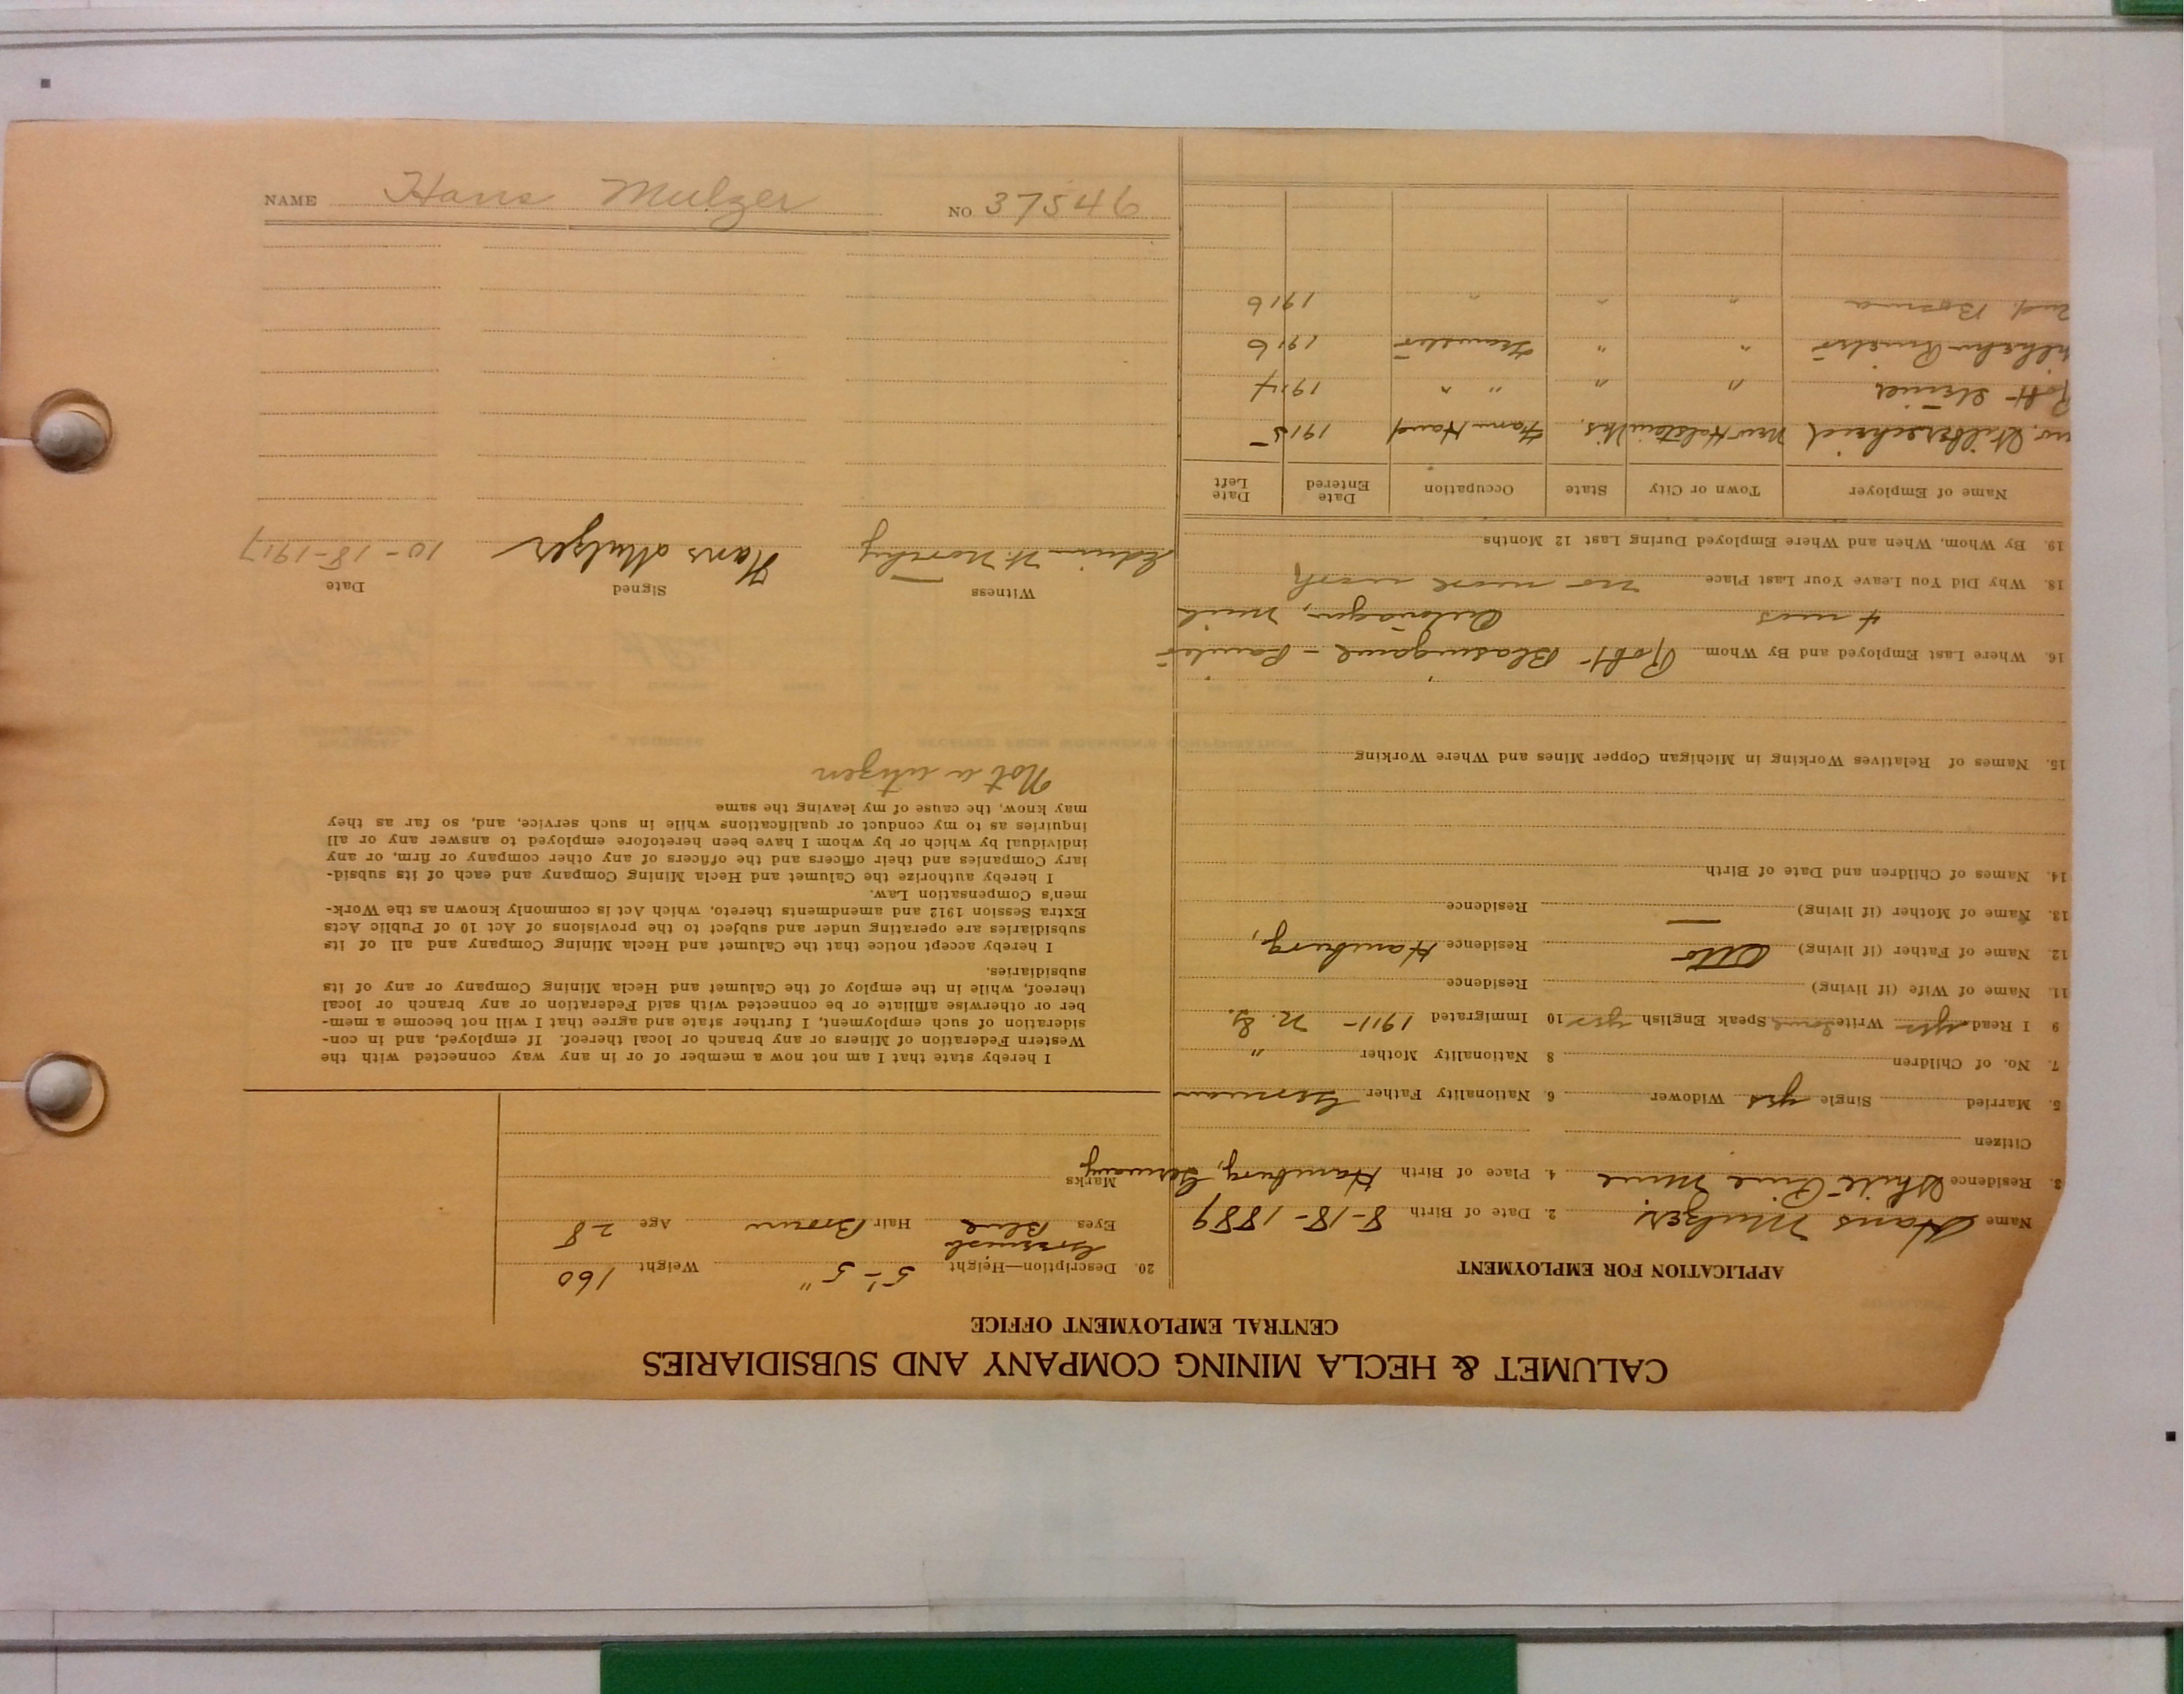 NAME Hans Mulzer NO. 37546
CALUMET & HECLA MINING COMPANY AND SUBSIDIARIES
CENTRAL EMPLOYMENT OFFICE
APPLICATION FOR EMPLOYMENT
Name Hans Mulzer 2. Date of Birth 8-18-1889
3. Residence White Pine Mine 4. Place of Birth Hamburg, Germany
Citizen
5. Married Single yes Widower 6. Nationality Father German
7. No. of Children 8 Nationality Mother "
9 I Read yes Write Speak English yes 10 Immigrated 1911- N. G.
11. Name of Wife (if living) Residence
12. Name of Father (if living) Otto Residence Hamburg,
13. Name of Mother (if living) — Residence
14. Names of Children and Date of Birth
15. Names of Relatives Working in Michigan Copper Mines and Where Working
16. Where Last Employed and By Whom Robt
4 mos Ontonagon, Mich
18. Why Did You Leave Your Last Place no more work
19. By Whom, When and Where Employed During Last 12 Months
Name of Employer Town or City State Occupation Date Entered Date Left
New Holstein Wis. Farm Hand 1915
Robt " " " " 1914
" " 1916
" " " 1916
20. Description—Height 5'-5" Weight 160
Eyes Blue Hair Brown Age 28
Marks
I hereby state that I am not now a member of or in any way connected with the
Western Federation of Miners or any branch or local thereof. If employed, and in con-
sideration of such employment, I further state and agree that I will not become a mem-
ber or otherwise affiliate or be connected with said Federation or any branch or local
thereof, while in the employ of the Calumet and Hecla Mining Company or any of its
subsidiaries.
I hereby accept notice that the Calumet and Hecla Mining Company and all of its
subsidiaries are operating under and subject to the provisions of Act 10 of Public Acts
Extra Session 1912 and amendments thereto, which Act is commonly known as the Work-
men's Compensation Law.
I hereby authorize the Calumet and Hecla Mining Company and each of its subsid-
iary Companies and their officers and the officers of any other company or firm, or any
individual by which or by whom I have been heretofore employed to answer any or all
inquiries as to my conduct or qualifications while in such service, and, so far as they
may know, the cause of my leaving the same
Not a citizen
Witness Signed Date
Edwin Hans Mulzer 10-18-1917